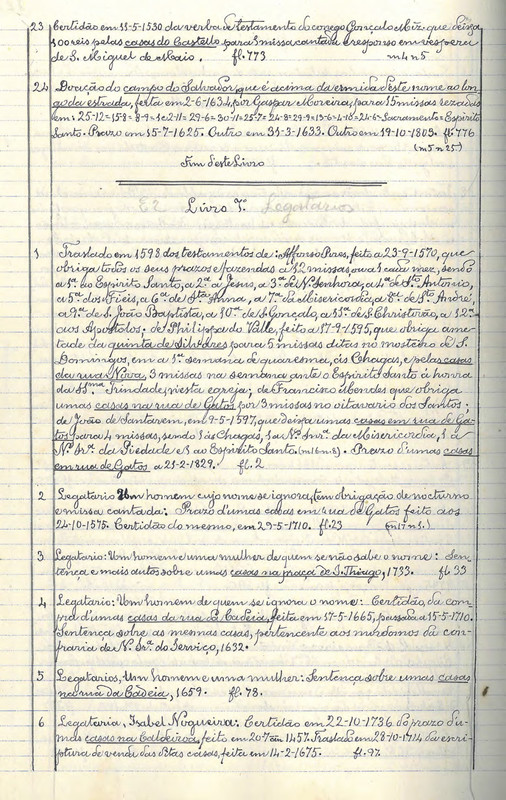 23 Certidão em 11-5-1530 da verba de testamento do conego Gonçalo Miz. que deixa
100 reis pelas casas do Castello para 1 missa cantada e responso em vespera
de S. Miguel de Maio. fl. 773 m 4 n 5
24 Doação do campo do Salvador, que é acima da ermida d'este nome ao lon
go da estrada, feita em 2-6-1634, por Gaspar Moreira, para 15 missas rezadas
em: 25-12=15-8= 8-9=1 e 2-11= 29-6= 30-11=25-7= 24-8=29-9=13-6=4-10=24-6=Sacramento=Espirito
Santo. Prazo em 15-7-1625. Outro em 31-3-1633. Outro em 19-10-1803. fl. 776
(m 5 n 25)
Fim d'este Livro
E2 Livro 7º Legatarios
1 Traslado em 1598 dos testamentos de: Affonso Pires, feito a 23-9-1570, que
obriga todos os seus prazos e fazendas a 12 missas ou a 1 cada mez, sendo
a 1ª ao Espirito Santo, a 2ª a Jesus, a 3ª de N. Senhora, a 4ª de Stº Antonio,
a 5ª dos Fieis, a 6ª de Stª Anna, a 7ª da Misericordia, a 8ª de Stº André,
a 9ª de S. João Baptista, a 10ª de S. Gonçalo, a 11ª de S. Christovão, a 12ª
aos Apostolos; de Philippa do Valle, feito a 17-9-1595, que obriga ame-
tade da quinta de Silvares para 5 missas ditas no mosteiro de S.
Domingos, em a 1ª semana de quaresma, ás Chagas, e pelas casas
da rua Nova, 3 missas na semana ante o Espirito Santo á honra
da SS.ma Trindade, n'esta egreja; de Francisco Mendes que obriga
umas casas na rua de Gatos por 3 missas no oitavario dos Santos;
de João de Santarem, em 9-5-1597, que deixa umas casas em rua de Ga-
tos para 4 missas, sendo 1 ás Chagas, 1 a Nª Snrª da Misericordia, 1 á
Nª Srª da Piedade e 1 ao Espirito Santo. (m 16 n 8). Prazo d'umas casas
em rua de Gatos a 21-2-1829. fl. 2
2 Legatario Um homem cujo nome se ignora, tem obrigação de nocturno
e missa cantada: Prazo d'umas casas em rua de Gatos feito aos
24-10-1575. Certidão do mesmo, em 29-5-1710. fl. 23 (m 17 n 1.)
3 Legatario: Um homem e uma mulher de quem se não sabe o nome: Sen-
tença e mais autos sobre umas casas na praça de S. Thiago, 1733. fl. 33
4 Legatario: Um homem de quem se ignora o nome: Certidão da com
pra d'umas casas da rua da Cadeia, feita em 17-5-1665, passada a 15-5-1710.
Sentença sobre as mesmas casas, pertencente aos mordomos da con-
fraria de N. Srª. do Serviço, 1632.
5 Legatarios, Um homem e uma mulher: Sentença sobre umas casas
na rua da Cadeia, 1659. fl. 78.
6 Legataria, Isabel Nogueira: Certidão em 22-10-1736 do prazo d'u-
mas casas na Caldeiroa, feito em 20-7-1457. Traslado em 28-10-1714 da escri-
ptura de venda das ditas casas, feita em 14-2-1675. fl. 97.